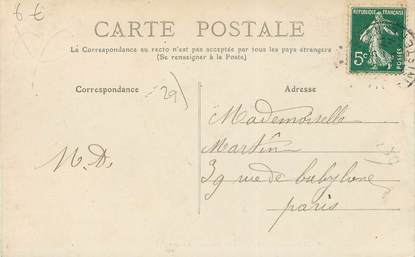 6 €
CARTE POSTALE
La Correspondance au recto n'est pas acceptée par tous les pays étrangers
(Se renseigner à la Poste)
RÉPUBLIQUE FRANÇAISE
5c
POSTES
Correspondance
29)
Adresse
Mademoiselle
Martin
39 rue de babylone
paris
M. D.